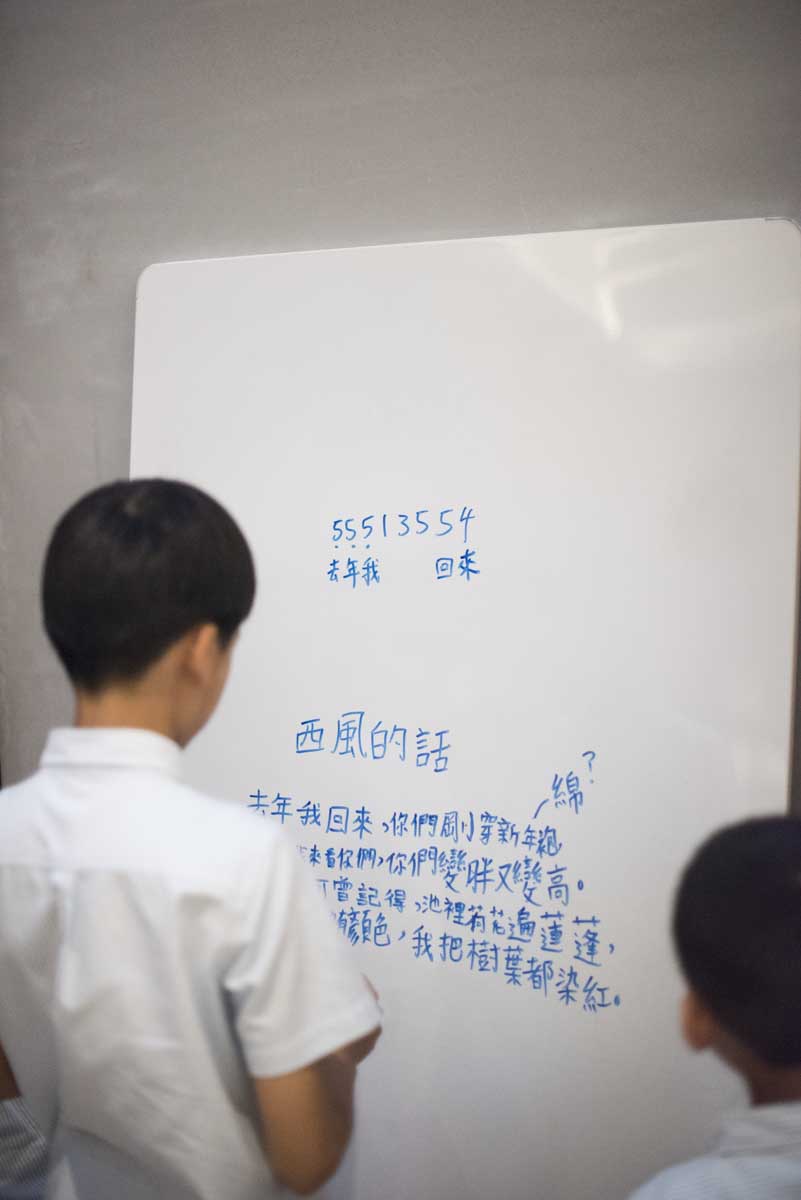 55513554
去年我 回來
西風的話
綿?
去年我回來,你們剛穿新年袍
來看你們,你們變胖又變高。
曾記得,池裡荷花遍蓮蓬,
顏色,我把樹葉都染紅。